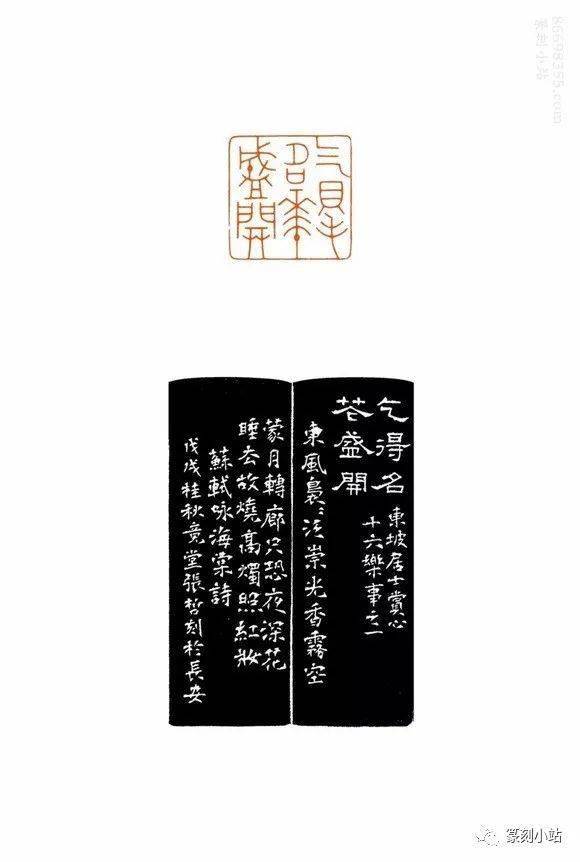 乞得
名花
盛開
乞得名
花盛開
東坡居士賞心
十六樂事之一
東風裊〻泛崇光香霧空
蒙月轉廊只恐夜深花
睡去故燒高燭照紅妝
蘇軾咏海棠詩
戊戌桂秋竟堂張哲刻於長安
86698355.com
篆刻小站
篆刻小站